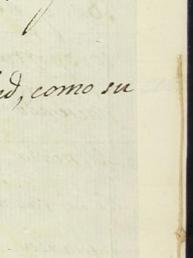 d, como su